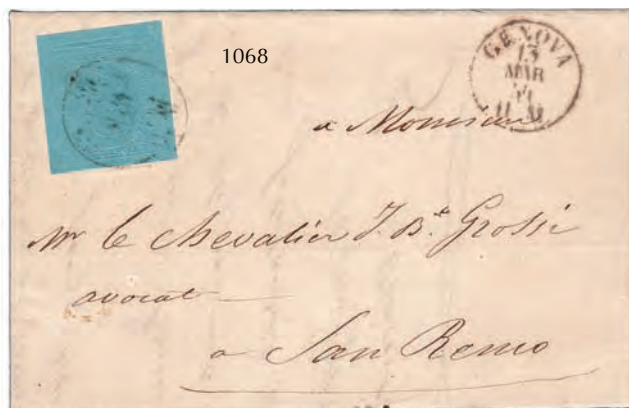 1068
GENOVA
13
MAR
a Monsieur
Mr le Chevalier J. Bt. Grossi
avocat
a San Remo